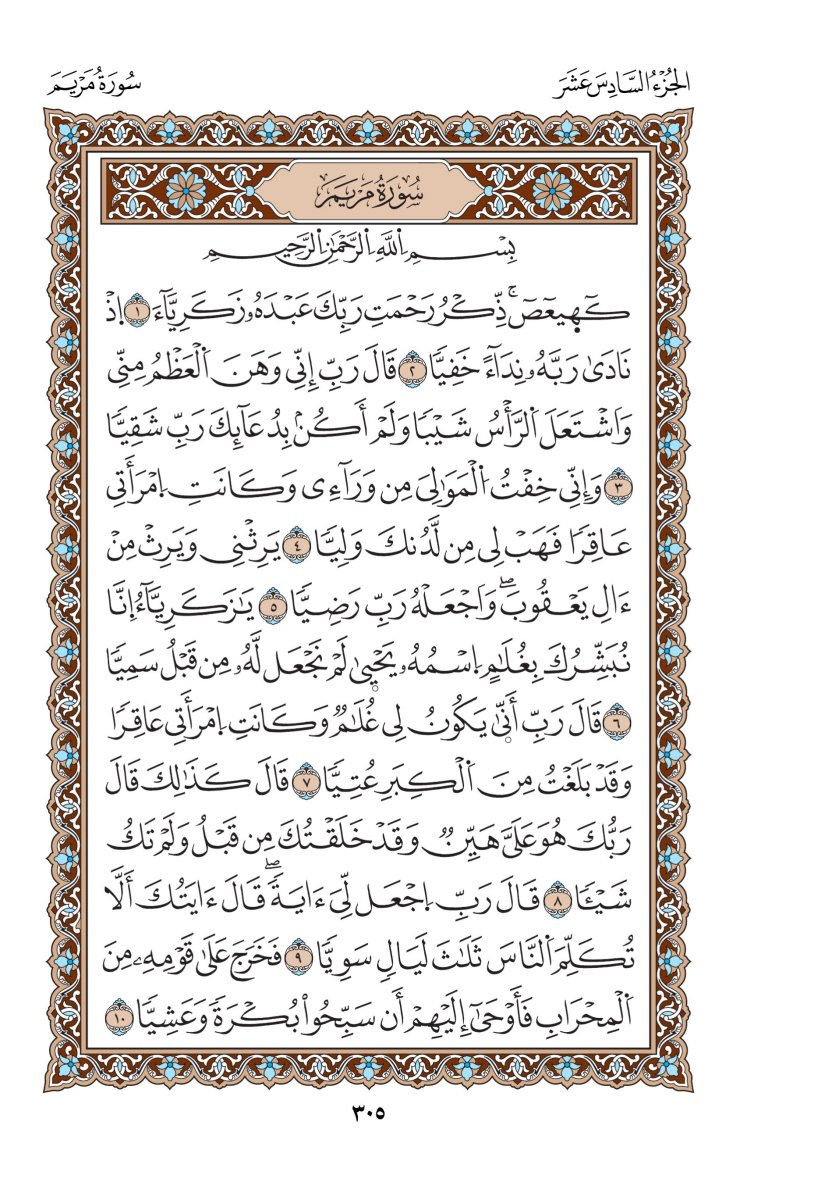 الجُزْءُ السَّادِسَ عَشَرَ
سُورَةُ مَرْيَمَ
سُورَةُ مَرْيَمَ
بِسْمِ اِ۬للَّهِ اِ۬لرَّحْمَٰنِ اِ۬لرَّحِيمِ
كَٓهيعَٓصَٓۚ ذِّكْرُ رَحْمَتِ رَبِّكَ عَبْدَهُۥ زَكَرِيَّآءَ ١ اِ۪ذْ
نَادَىٰ رَبَّهُۥ نِدَآءً خَفِيّٗا ٢ قَالَ رَبِّ إِنِّي وَهَنَ اَ۬لْعَظْمُ مِنِّي
وَاشْتَعَلَ اَ۬لرَّأْسُ شَيْبٗا وَلَمْ أَكُنۢ بِدُعَآئِكَ رَبِّ شَقِيّٗا
٣ وَإِنِّي خِفْتُ اُ۬لْمَوَٰلِيَ مِن وَرَآءِي وَكَانَتِ اِ۪مْرَأَتِي
عَاقِرٗا فَهَبْ لِي مِن لَّدُنكَ وَلِيّٗا ٤ يَرِثْنِي وَيَرِثْ مِنْ
ءَالِ يَعْقُوبَۖ وَاَجْعَلْهُ رَبِّ رَضِيّٗا ٥ يَٰزَكَرِيَّآءُ اِنَّا
نُبَشِّرُكَ بِغُلَٰمٍ اِ۪سْمُهُۥ يَحْيۭيٰ لَمْ نَجْعَل لَّهُۥ مِن قَبْلُ سَمِيّٗا
٦ قَالَ رَبِّ أَنّۭيٰ يَكُونُ لِي غُلَٰمٞ وَكَانَتِ اِ۪مْرَأَتِي عَاقِرٗا
وَقَدْ بَلَغْتُ مِنَ اَ۬لْكِبَرِ عُتِيّٗا ٧ قَالَ كَذَٰلِكَ قَالَ
رَبُّكَ هُوَ عَلَيَّ هَيِّنٞ وَقَدْ خَلَقْتُكَ مِن قَبْلُ وَلَمْ تَكُ
شَيْـٔٗا ٨ قَالَ رَبِّ اِ۪جْعَل لِّيَ ءَايَةٗۖ قَالَ ءَايَتُكَ أَلَّا
تُكَلِّمَ اَ۬لنَّاسَ ثَلَٰثَ لَيَالٖ سَوِيّٗا ٩ فَخَرَجَ عَلَىٰ قَوْمِهِۦ مِنَ
اَ۬لْمِحْرَابِ فَأَوْحَىٰٓ إِلَيْهِمْ أَن سَبِّحُواْ بُكْرَةٗ وَعَشِيّٗا ١٠
٣٠٥